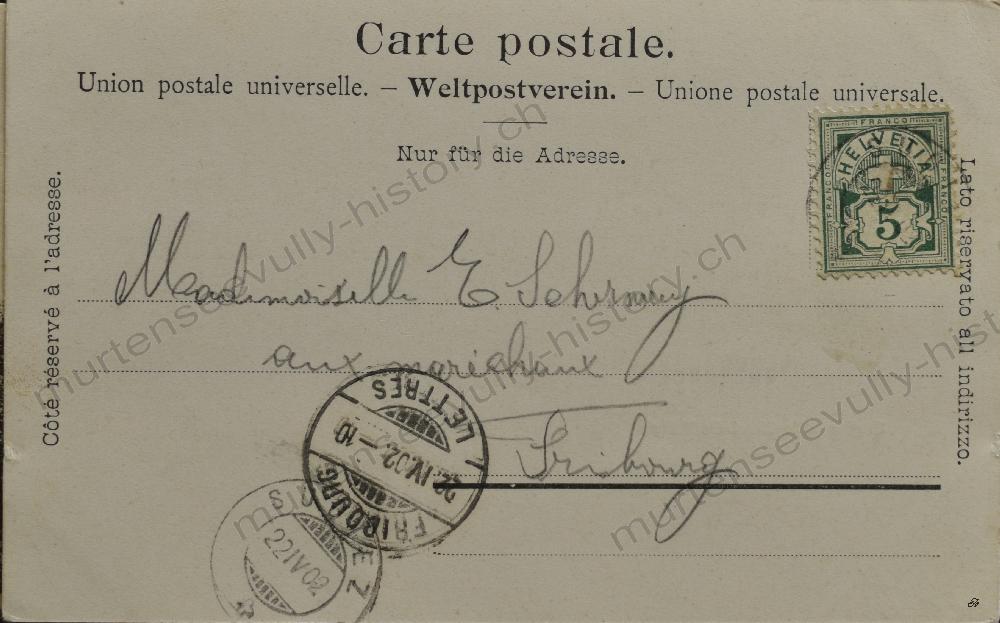 Carte postale.
Union postale universelle. – Weltpostverein. – Unione postale universale.
Nur für die Adresse.
Côté réservé à l'adresse.
Lato riservato all indirizzo.
FRANCO
HELVETIA
FRANCO
FRANCO
5
Mademoiselle E.
aux maréchaux
Fribourg
LETTRES
22.IV.02.–10
FRIBOURG
22 IV 02
murtenseevully-history.ch
murtenseevully-history.ch
murtenseevully-history